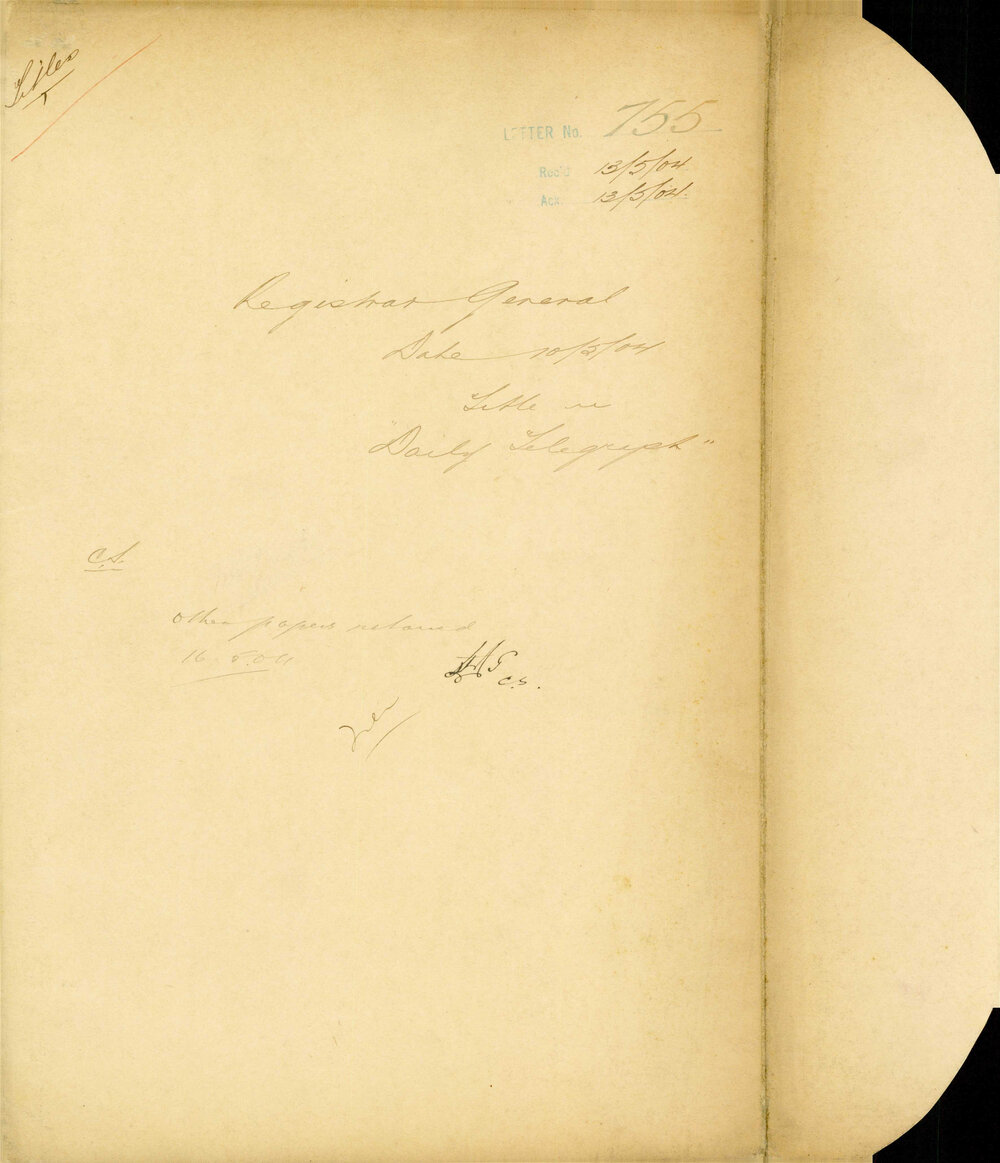 Titles
LETTER No. 755
Rec'd 13/5/04
Ack. 13/5/04.
Registrar General
Date 10/5/04
Title in
"Daily Telegraph"
C.S.
Other papers returned
16.5.04
C.S.